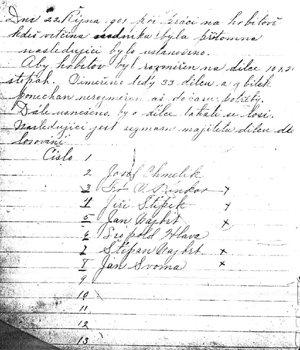 Dne 22 Října 901 při práci na hřbitově
kdež většina oudniku byla přítomna
následující bylo ustanoveno.
Aby hřbitov byl rozměřen na dílce 10x21
stopách. Změřeno tedy 33 dílcu a zbitek
ponechan nerozměřen až do času potřeby.
Dále ustanoveno, by o dílce tahali se losi.
Následující jest seznam majitelů dílců dle
losování
Číslo 1
2 Josef Chmelik
3 x
4 Jiří Stípek x
5 Jan Vajbrt x
6 Leopold Hlava
7 Štěpan Vajbrt x
8 Jan Svoma x
9
10
11
12
13